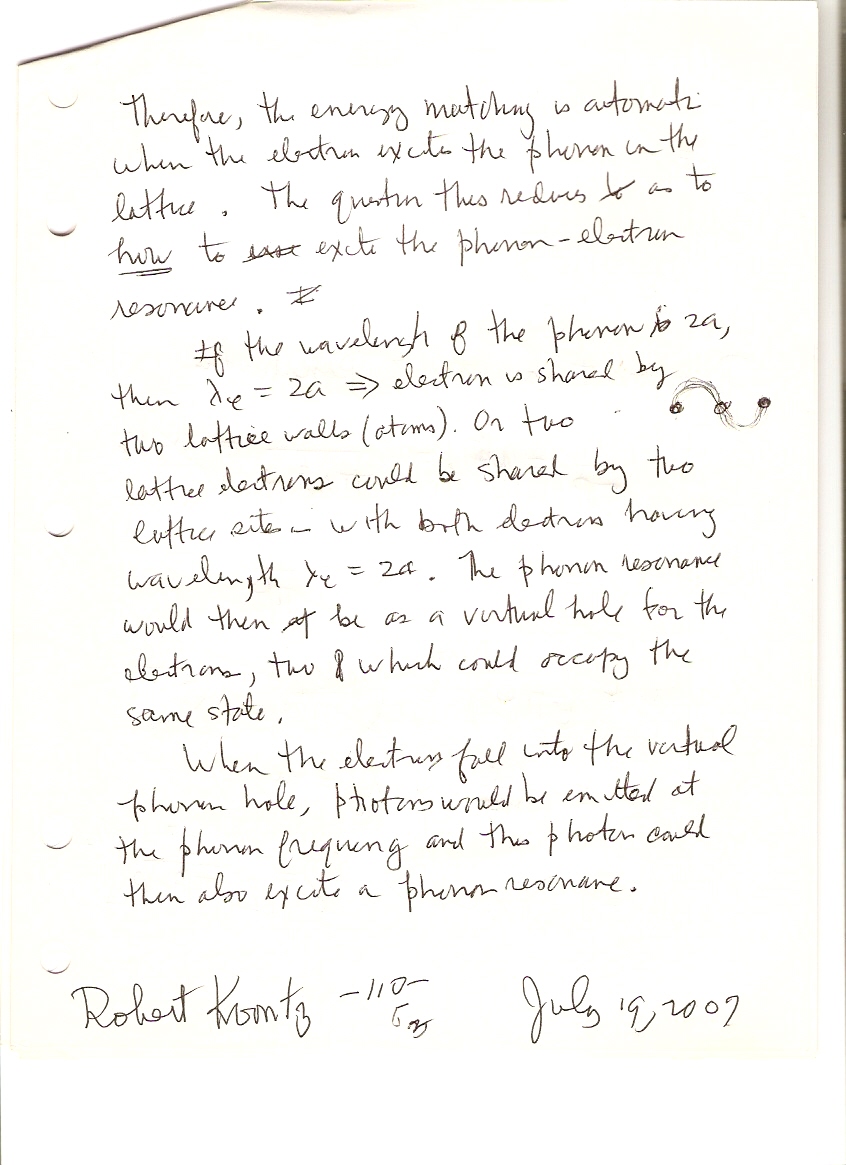 Therefore, the energy matching is automatic
when the electron excites the phonon in the
lattice. The question thus reduces to as to
how to excite the phonon-electron
resonance.
If the wavelength of the phonon is 2a,
then λe = 2a ⇒ electron is shared by
two lattice walls (atoms). Or two
lattice electrons could be shared by two
lattice sites - with both electrons having
wavelength λe = 2a. The phonon resonance
would then be as a virtual hole for the
electrons, two of which could occupy the
same state.
When the electrons fall into the virtual
phonon hole, photons would be emitted at
the phonon frequency and this photon could
then also excite a phonon resonance.
Robert Koontz -110- July 19, 2007